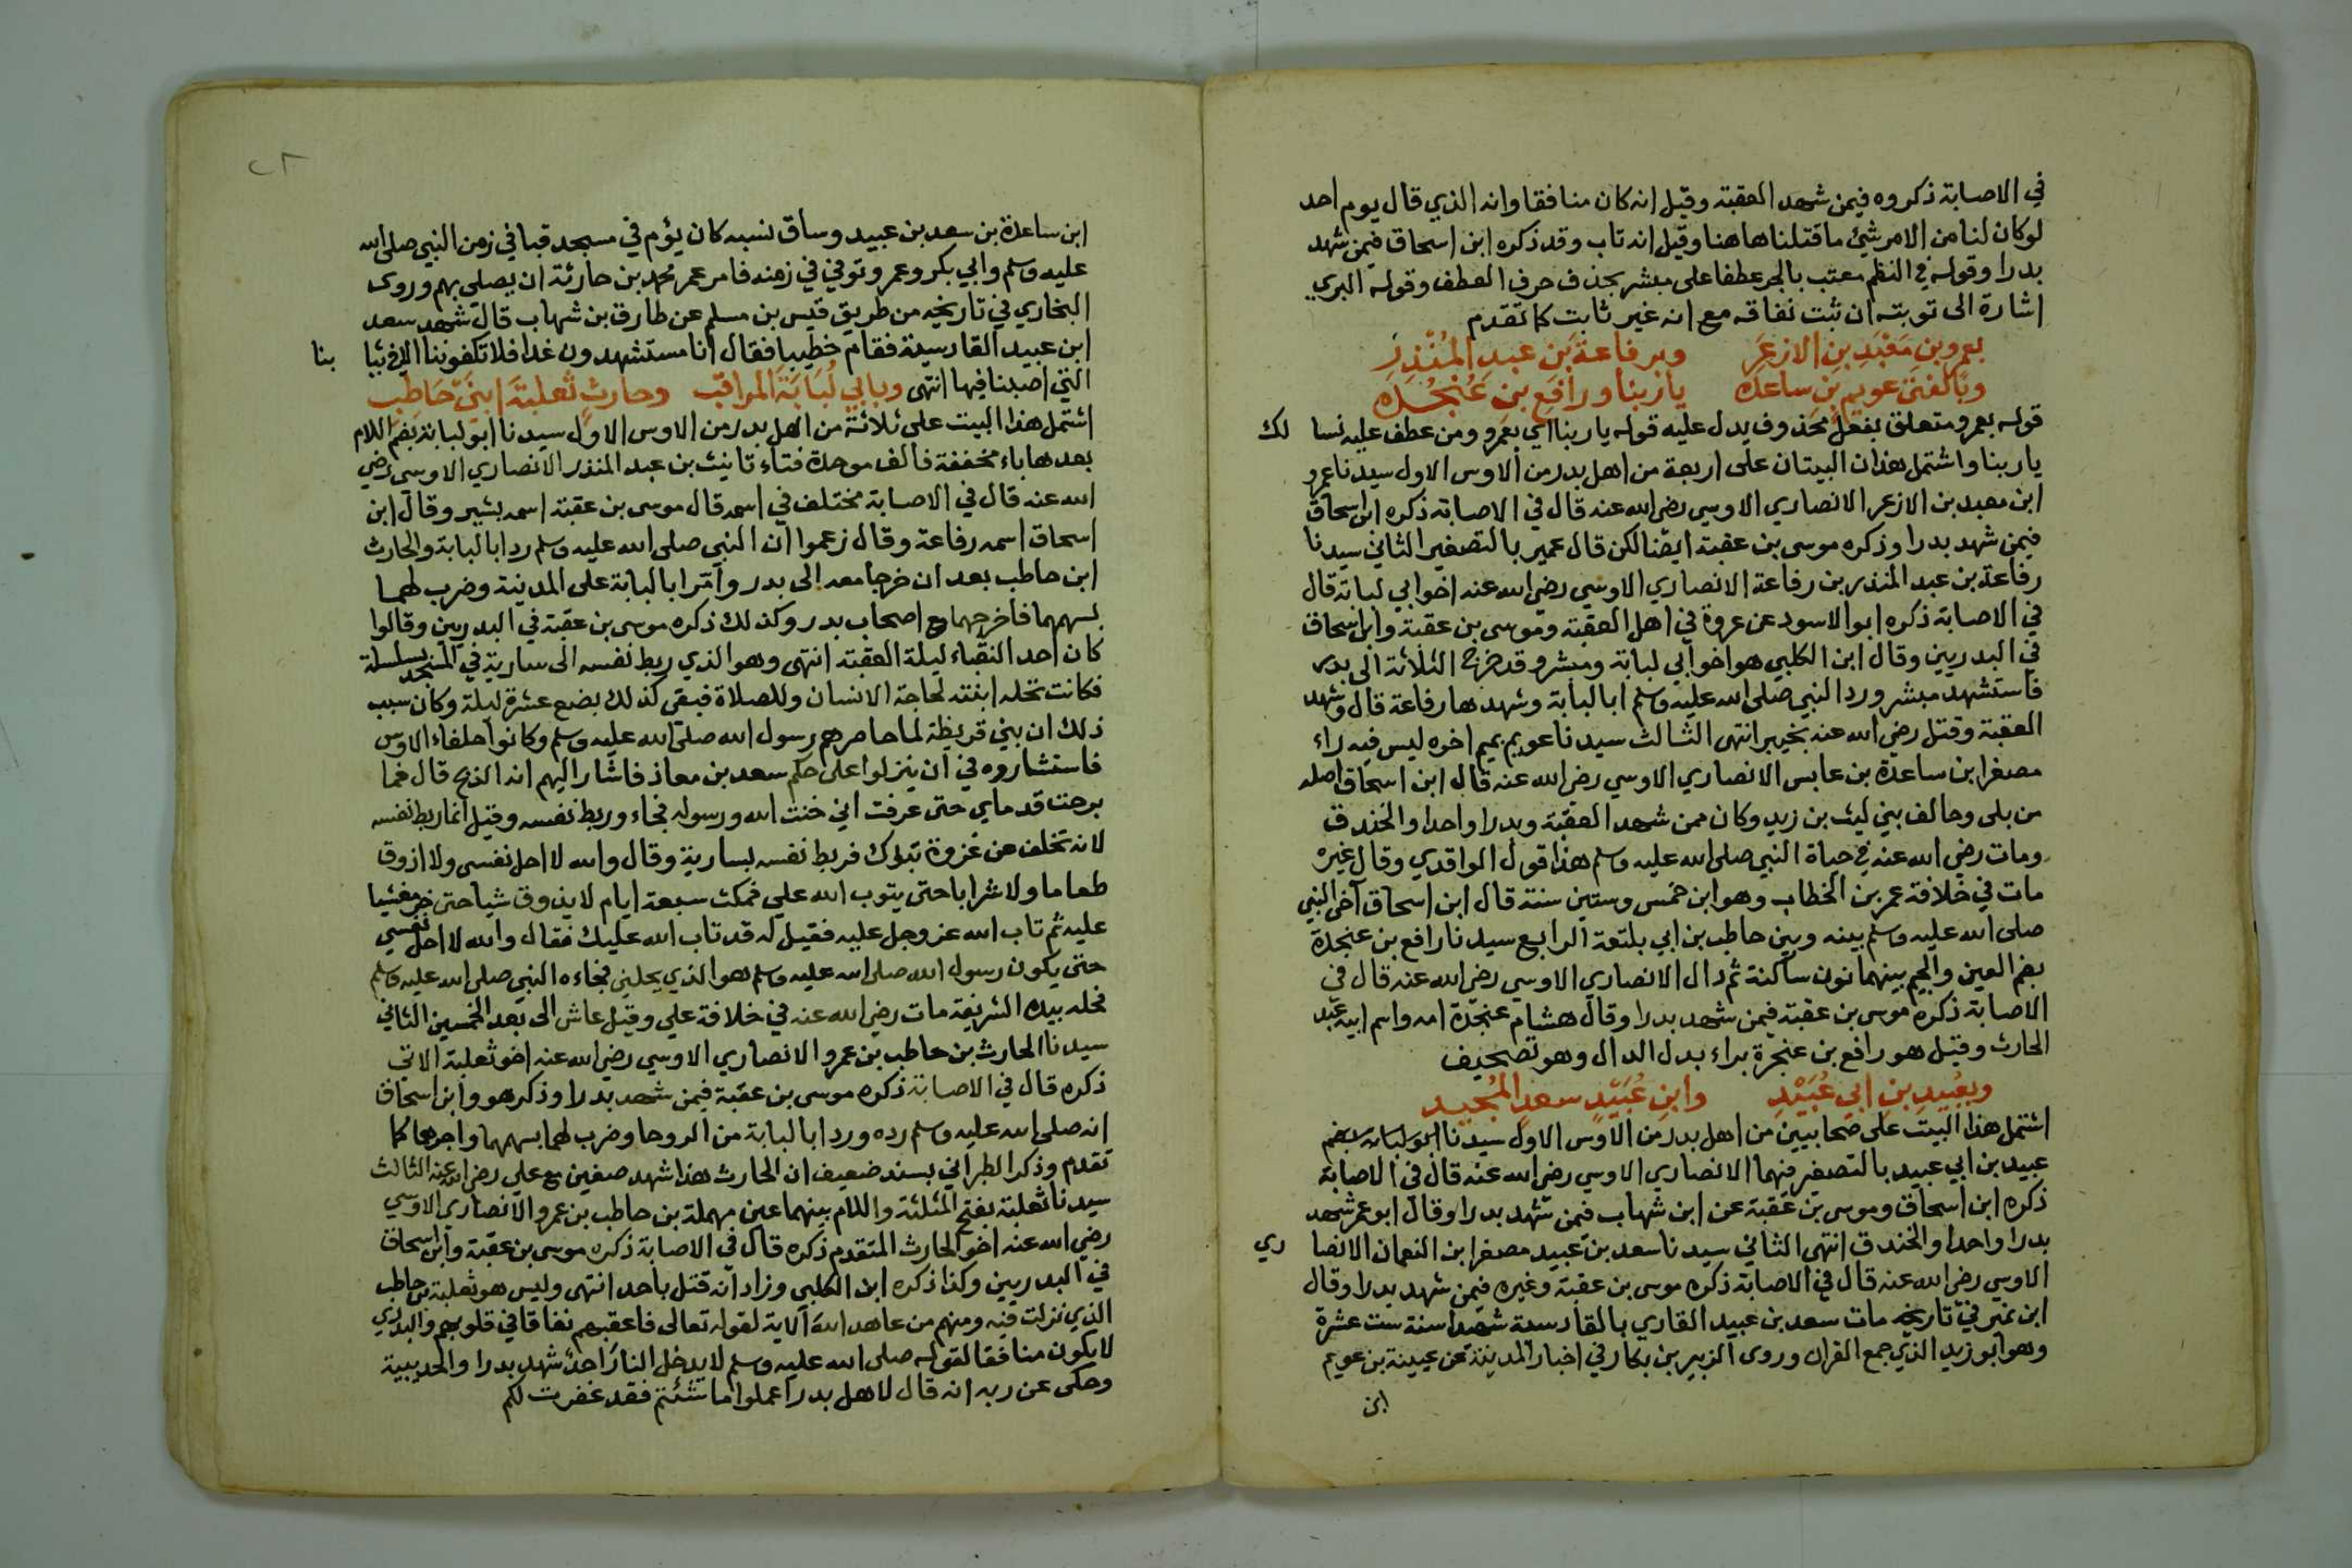 في الاصابة ذكروه فيمن شهد العقبة وقيل انه كان منافقا وانه الذي قال يوم احد
لو كان لنا من الامر شئ ما قتلنا هاهنا وقيل انه تاب وقد ذكره ابن اسحاق فيمن شهد
بدرا وقوله في النظم معتب بالجر عطفا على مبشر بحذف حرف العطف وقوله البري
اشارة الى توبته ان ثبت نفاقه مع انه غير ثابت كما تقدم
بعمرو بن مَعْبَدِ بن الازعَرِ وبرفاعة بن عبدِ المُنْذِرِ
وبالفتى عويم بن ساعدة ياربنا ورافع بن عُنْجُدَه
قوله بعمرو متعلق بفعل محذوف يدل عليه قوله ياربنا اي بعمرو ومن عطف عليه نسا لك
ياربنا واشتمل هذان البيتان على اربعة من اهل بدر من الاوس الاول سيدنا عمرو
ابن معبد بن الازعر الانصاري الاوسي رضي الله عنه قال في الاصابة ذكره ابن اسحاق
فيمن شهد بدرا وذكره موسى بن عقبة ايضا لكن قال عمير بالتصغير الثاني سيدنا
رفاعة بن عبد المنذر بن رفاعة الانصاري الاوسي رضي الله عنه اخو ابي لبابة قال
في الاصابة ذكره ابو الاسود عن عروة في اهل العقبة وموسى بن عقبة وابن اسحاق
في البدريين وقال ابن الكلبي هو اخو ابي لبابة ومبشر وقد خرج الثلاثة الى بدر
فاستشهد مبشر ورد النبي صلى الله عليه وسلم ابا لبابة وشهدها رفاعة قال وشهد
العقبة وقتل رضي الله عنه بخيبر انتهى الثالث سيدنا عويم بميم اخره ليس فيه راء
مصغرا بن ساعدة بن عابس الانصاري الاوسي رضي الله عنه قال ابن اسحاق اصله
من بلى وحالف بني ليث بن زيد وكان ممن شهد العقبة وبدرا واحدا والخندق
ومات رضي الله عنه في حياة النبي صلى الله عليه وسلم هذا قول الواقدي وقال غيره
مات في خلافة عمر بن الخطاب وهو ابن خمس وستين سنة قال ابن اسحاق اخى النبي
صلى الله عليه وسلم بينه وبين حاطب بن ابي بلتعة الرابع سيدنا رافع بن عنجدة
بضم العين والجيم بينهما نون ساكنة ثم دال الانصاري الاوسي رضي الله عنه قال في
الاصابة ذكره موسى بن عقبة فيمن شهد بدرا وقال هشام عنجدة امه واسم ابيه عبد
الحارث وقيل هو رافع بن عنجرة براء بدل الدال وهو تصحيف
وبعُبيدِ بن ابي عُبَيْدِ وابنِ عُبَيْدٍ سعدٍ المُجيد
اشتمل هذا البيت على صحابيين من اهل بدر من الاوس الاول سيدنا ابو لبابه بضم
عبيد بن ابي عبيد بالتصغير فيهما الانصاري الاوسي رضي الله عنه قال في الاصابة
ذكره ابن اسحاق وموسى بن عقبة عن ابن شهاب فيمن شهد بدرا وقال ابو عمر شهد
بدرا واحدا والخندق انتهى الثاني سيدنا سعد بن عبيد مصغرا بن النعمان الانصا ري
الاوسي رضي الله عنه قال في الاصابة ذكره موسى بن عقبة وغيره فيمن شهد بدرا وقال
ابن نمير في تاريخه مات سعد بن عبيد القاري بالقادسية شهيدا سنة ست عشرة
وهو ابو زيد الذي جمع القران وروى الزبير بن بكار في اخبار المدينة عن عيينة بن عويم
ابن
٢٨
ابن ساعدة بن سعد بن عبيد وساق نسبه كان يؤم في مسجد قبا في زمن النبي صلى الله
عليه وسلم وابي بكر وعمر وتوفي في زمنه فامر عمر محمد بن حارثة ان يصلي بهم وروى
البخاري في تاريخه من طريق قيس بن مسلم عن طارق بن شهاب قال شهد سعد
ابن عبيد القادسية فقام خطيبا فقال انا مستشهدون غدا فلا تكفوننا الا في ثيا بنا
التي اصبنا فيها انتهى وبابي لُبَابَةَ المراقب وحارثٍ ثعلبةَ ابنَيْ حَاطِبِ
اشتمل هذا البيت على ثلاثة من اهل بدر من الاوس الاول سيدنا ابو لبابة بضم اللام
بعدها باء مخففة فالف موحدة فتاء تانيث بن عبد المنذر الانصاري الاوسي رضي
الله عنه قال في الاصابة مختلف في اسمه قال موسى بن عقبة اسمه بشير وقال ابن
اسحاق اسمه رفاعة وقال زعموا ان النبي صلى الله عليه وسلم رد ابا لبابة والحارث
ابن حاطب بعد ان خرجا معه الى بدر وامّر ابا لبابة على المدينة وضرب لهما
بسهمهما فاخرجهما مع اصحاب بدر وكذلك ذكره موسى بن عقبة في البدريين وقالوا
كان احد النقباء ليلة العقبة انتهى وهو الذي ربط نفسه الى سارية في المسجد بسلسلة
فكانت تحله ابنته لحاجة الانسان وللصلاة فبقى كذلك بضع عشرة ليلة وكان سبب
ذلك ان بني قريظة لما حاصرهم رسول الله صلى الله عليه وسلم وكانوا حلفاء الاوس
فاستشاروه في ان ينزلوا على حكم سعد بن معاذ فاشار اليهم انه الذبح قال فما
برحت قدماي حتى عرفت اني خنت الله ورسوله فجاء وربط نفسه وقيل انما ربط نفسه
لانه تخلف عن غزوة تبوك فربط نفسه بسارية وقال والله لا احل نفسي ولا اذوق
طعاما ولا شرابا حتى يتوب الله علي فمكث سبعة ايام لا يذوق شيا حتى خر مغشيا
عليه ثم تاب الله عز وجل عليه فقيل له قد تاب الله عليك فقال والله لا احل نفسي
حتى يكون رسول الله صلى الله عليه وسلم هو الذي يحلني فجاءه النبي صلى الله عليه وسلم
فحله بيده الشريفة مات رضي الله عنه في خلافة علي وقيل عاش الى بعد الخمسين الثاني
سيدنا الحارث بن حاطب بن عمرو الانصاري الاوسي رضي الله عنه اخو ثعلبة الاتى
ذكره قال في الاصابة ذكره موسى بن عقبة فيمن شهد بدرا وذكر هو وابن اسحاق
انه صلى الله عليه وسلم رده ورد ابا لبابة من الروحا وضرب لهما بسهمهما واجرهما كما
تقدم وذكر الطبراني بسند ضعيف ان الحارث هذا شهد صفين مع علي رضي الله عنه الثالث
سيدنا ثعلبة بفتح المثلثة واللام بينهما عين مهملة بن حاطب بن عمرو الانصاري الاوسي
رضي الله عنه اخو الحارث المتقدم ذكره قال في الاصابة ذكره موسى بن عقبة وابن اسحاق
في البدريين وكذا ذكره ابن الكلبي وزاد انه قتل باحد انتهى وليس هو ثعلبة بن حاطب
الذي نزلت فيه ومنهم من عاهد الله الاية لقوله تعالى فاعقبهم نفاقا في قلوبهم والبدري
لا يكون منافقا لقوله صلى الله عليه وسلم لا يدخل النار احد شهد بدرا والحديبية
وحكى عن ربه انه قال لاهل بدر اعملوا ما شئتم فقد غفرت لكم